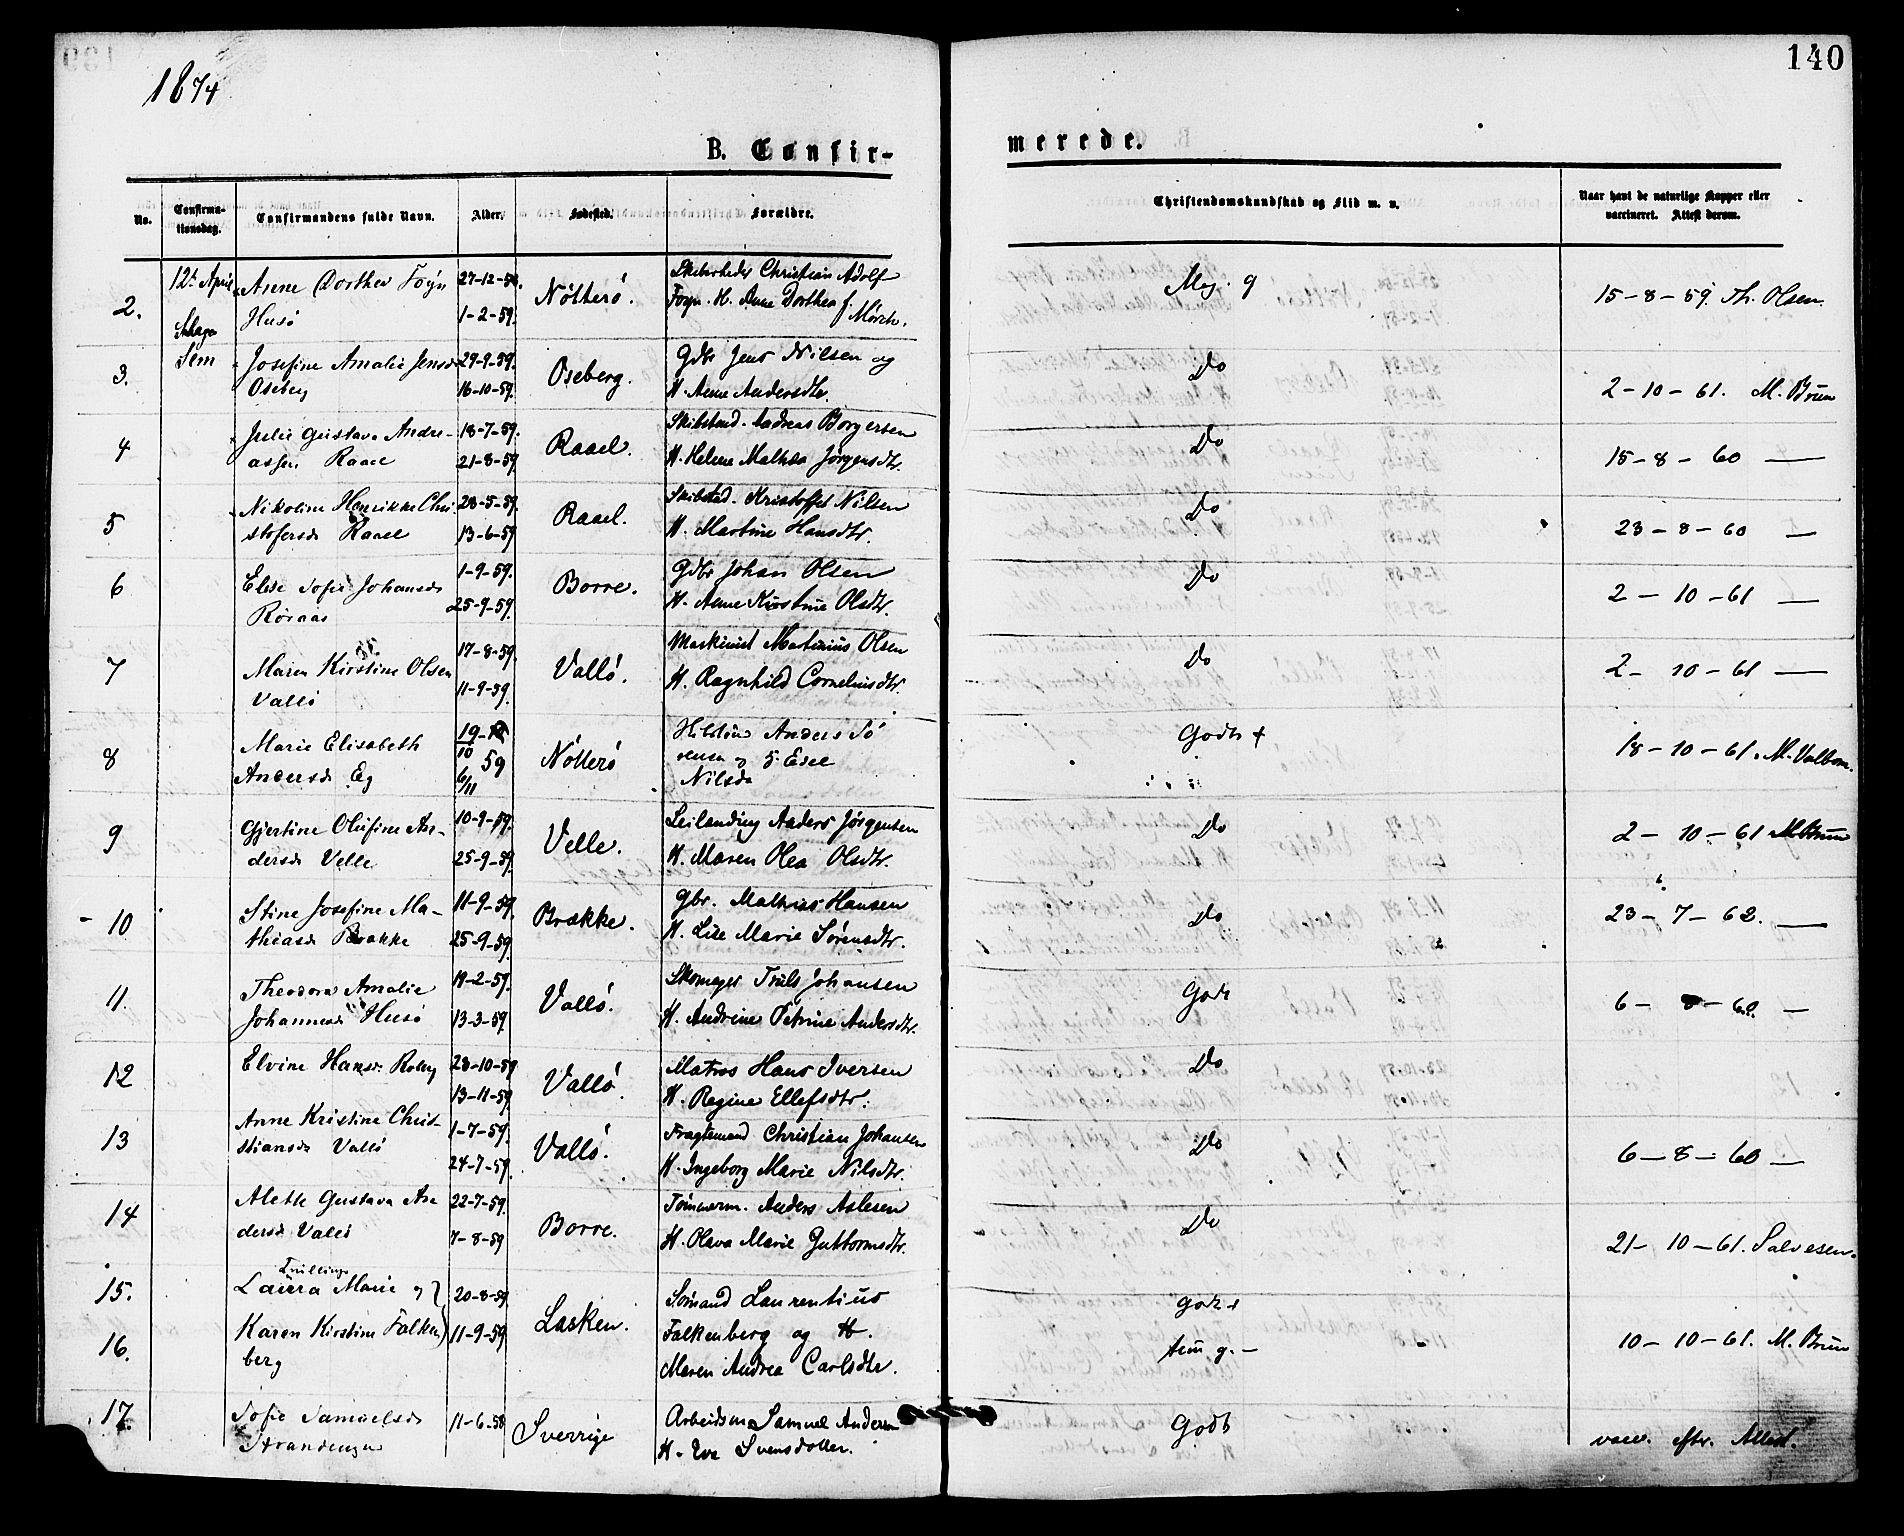 140
1874
B. Confirmerede.
No.
Confirmationsdag.
Confirmandens fulde Navn.
Alder.
Fødested.
Forældre.
Christendomskundskab og Flid m. v.
Naar havt de naturlige Kopper eller
vaccineret. Attest derom.
2. 12te April Anne Dorthea Føyn 27-12-58. Nötterö. Christian Adolf Meg. g 15-8-59. Th. Olsen.
Husö 1-2-59. Foyn. H. Anne Dorthea f. Mörch.
Sem
3. Josefine Amalie Jensd. 29-9-59. Oseberg. Gdbr Jens Nilsen og Do 2-10-61. M. Bruun
Oseberg 16-10-59. H. Anne Andersdtr.
4 Julie Gustava Andre- 18-7-59. Raael. Skibstmd. Andreas Borgersen Do 15-8-60 —
assen Raael 21-8-59. H. Helene Mathea Jörgensdtr.
5 Nikoline Henrikke Chri 28-5-59. Raael. Skibstmd. Kristoffer Nilsen Do 23-8-60 —
stofersd. Raael 13-6-59 H. Martine Hansdtr.
6 Elise Sofie Johansd. 1-9-59. Borre. Gdbr Johan Olsen Do 2-10-61 —
Röraas 25-9-59. H. Anne Kirstine Olsdtr.
7 Maren Kirstine Olsen 17-8-59. Vallö. Maskinist Martinius Olsen Do 2-10-61 —
Vallö 11-9-59. H. Ragnhild Corneliusdtr.
8 Marie Elisabeth 19/10 59 Nötterö Anders Sö Godt + 18-10-61. M. Valbom.
Andersd. Eg 6/11 rensen og
Nilsd.
9 Gjertine Olufine An- 10-9-59. Velle. Leilending Anders Jörgensen Do 2-10-61 M. Bruun
dersd. Velle 25-9-59. H. Maren Olea Olsdtr.
10 Stine Josefine Ma- 11-9-59. Brække. Gbr. Mathias Hansen Do 23-7-62. —
thiasd. Brække 25-9-59. H. Lise Marie Sörensdtr.
11. Theodora Amalie 19-2-59. Vallö. Skomager Truls Johansen Godt 6-8-60. —
Johannesd. Husö 13-3-59. H. Andrine Petrine Andersdtr.
12 Elvine Hansd. Roberg 28-10-59. Vallö. Matros Hans Iversen Do
13-11-59. H. Regine Ellefsdtr.
13 Anne Kristine Chris- 1-7-59. Vallö. Fragtemand Christian Johansen Do 6-8-60 —
tiansd. Vallö 24-7-59. H. Ingeborg Marie Nilsdtr.
14 Alette Gustava An 22-7-59. Borre. Tömmerm. Anders Aslesen Do 21-10-61. Salvesen.
dersd. Vallö 7-8-59 H. Olava Marie Guttormsdtr.
Tvillinger
15. Laura Marie og 20-8-59 Lasken. Sömand Laurentius godt +
16. Karen Kirstine Falken 11-9-59 Falkenberg og H. tem g. — 10-10-61. M. Bruun
berg Maren Andrea Carlsdtr.
17. Sofie Samuelsd. 11-6-58 Sverrige Arbeidsm. Samuel Andersen Godt vacc. eftr. Attest.
Strandengen H. Eva Svensdotter.